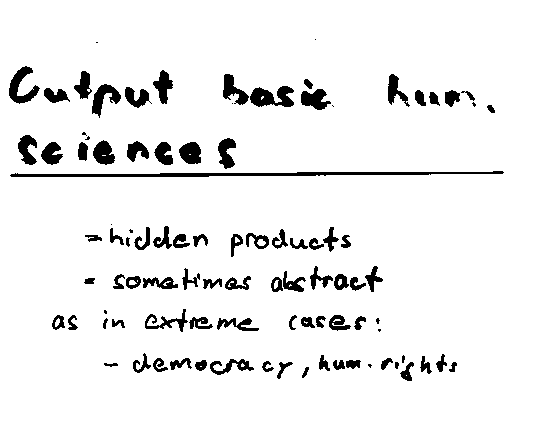 Output basic hum.
sciences
= hidden products
= sometimes abstract
as in extreme cases:
- democracy, hum. rights